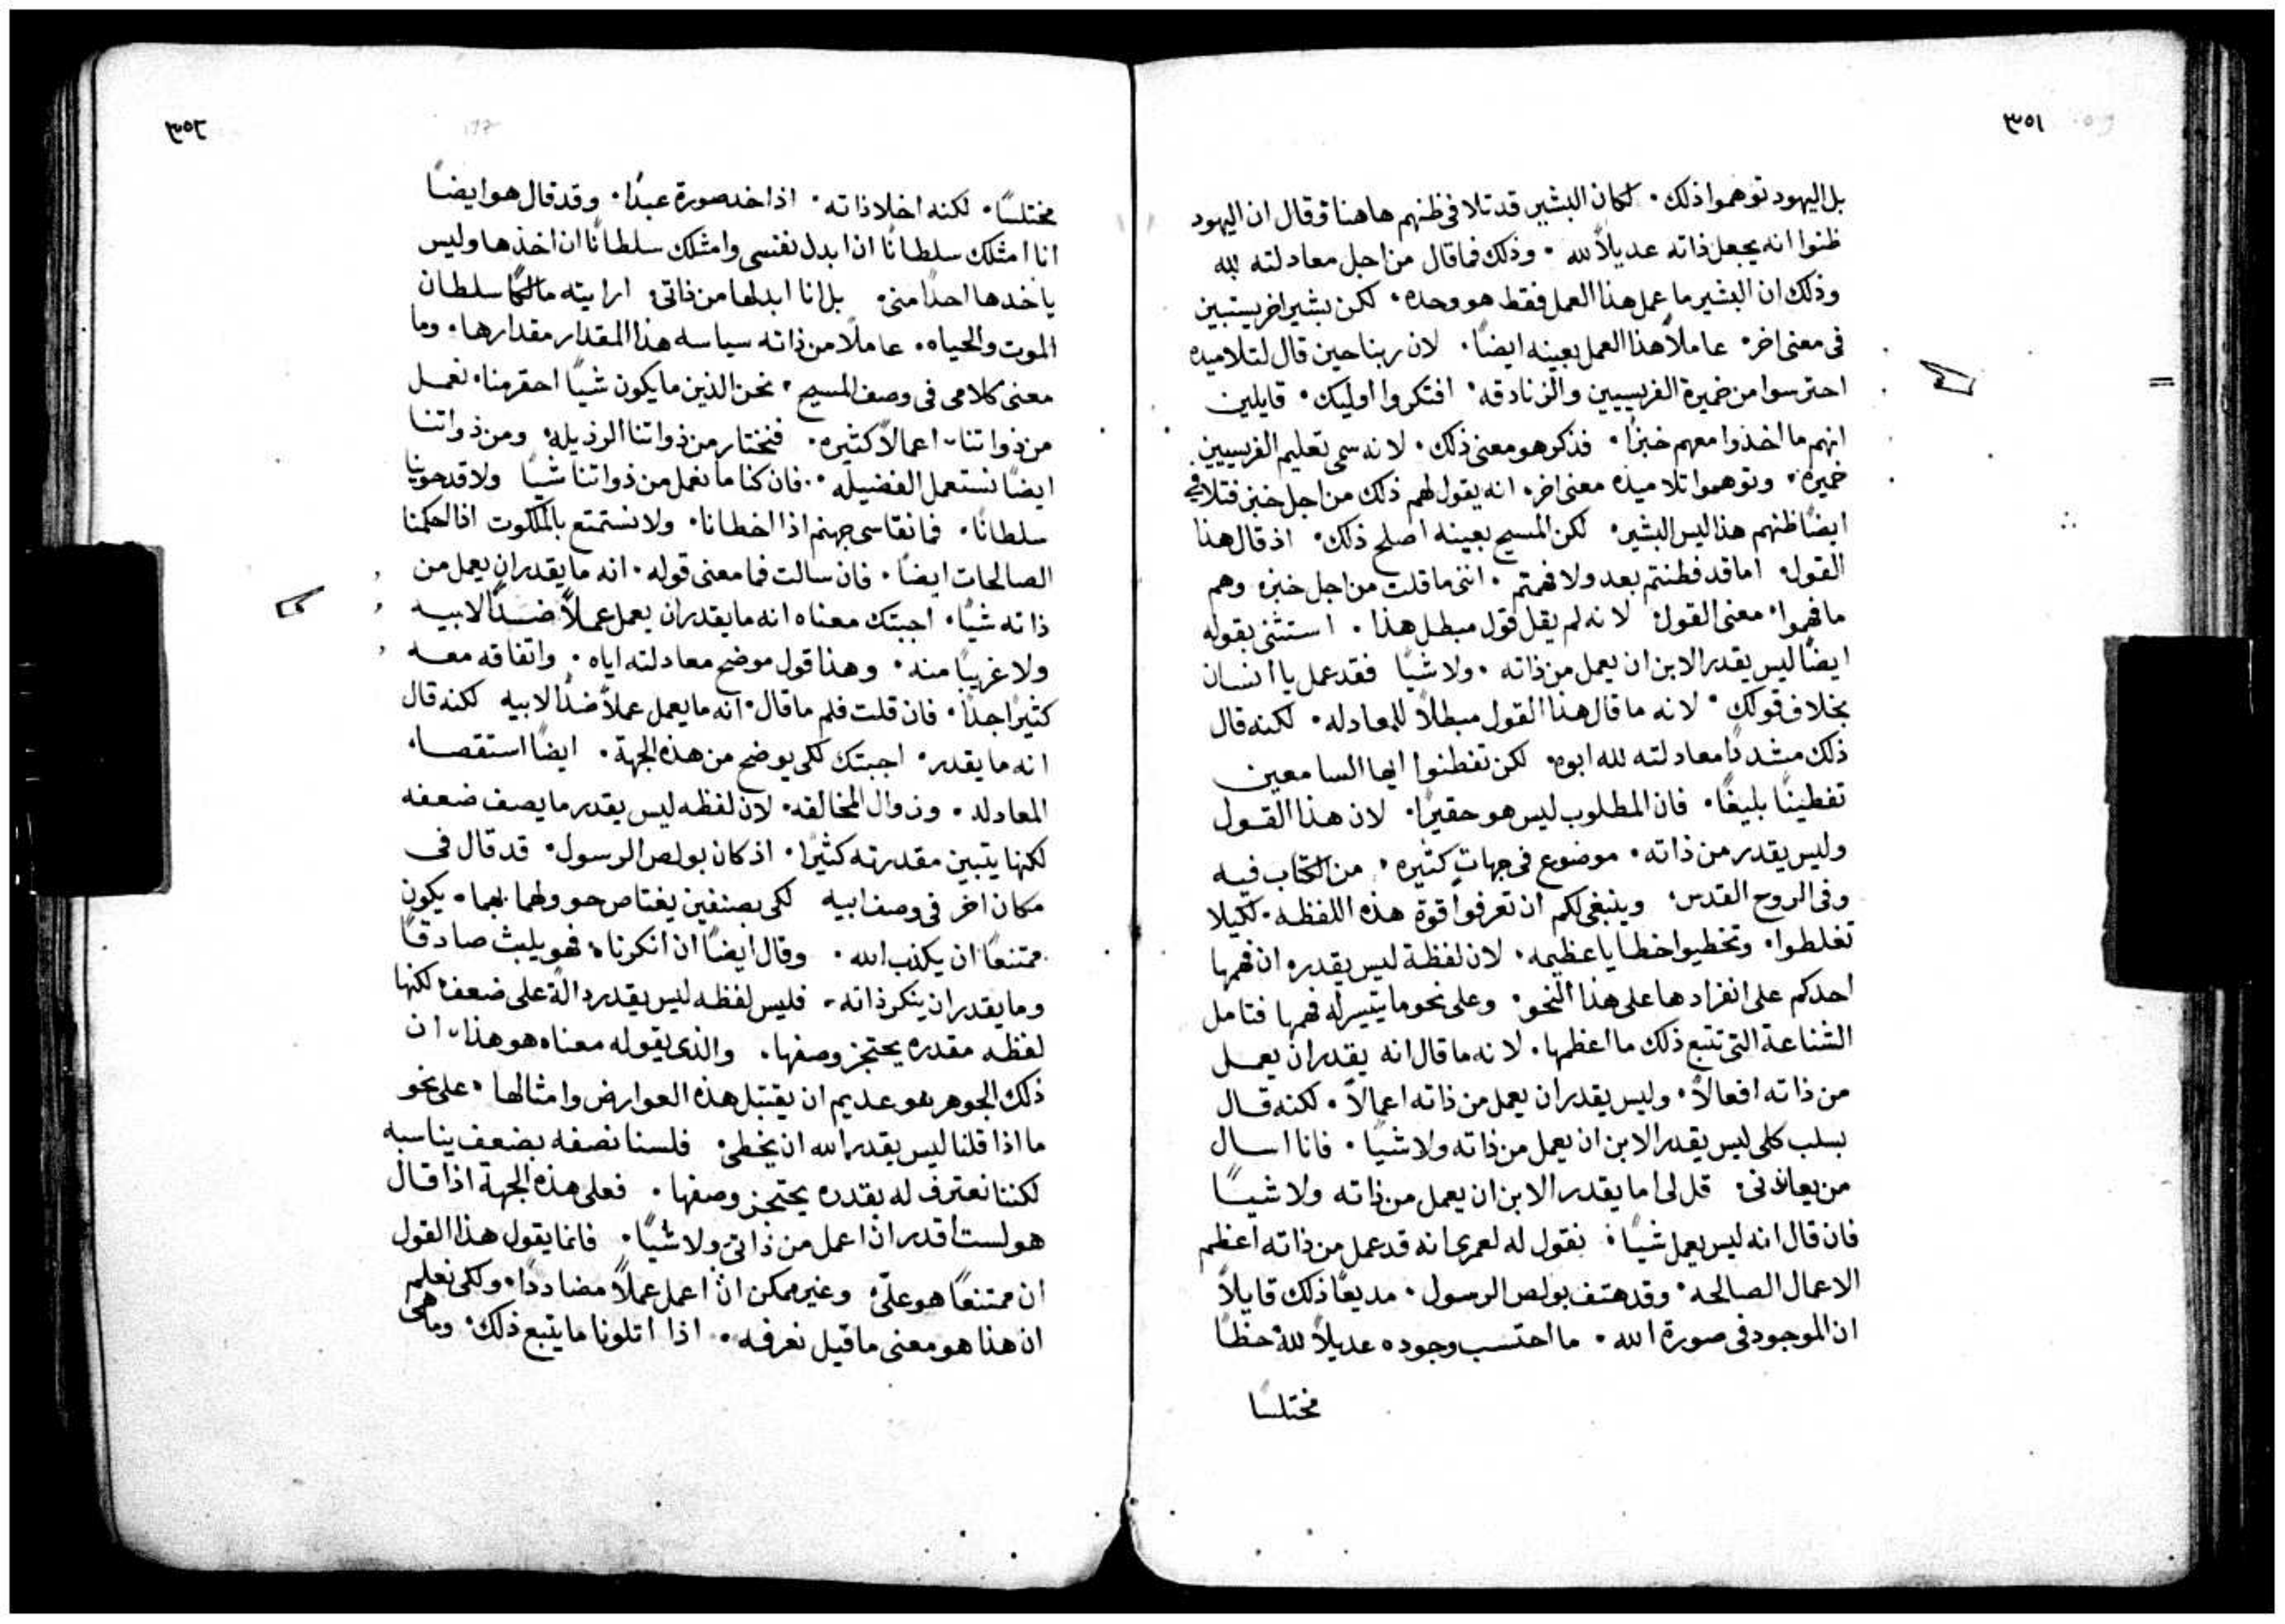 ٣٥١
بل اليهود توهموا ذلك. لكان البشير قد تلافى ظنهم هاهنا وقال ان اليهود
ظنوا انه يجعل ذاته عديلاً لله. وذلك فما قال من اجل معادلته لله
وذلك ان البشير ما عمل هذا العمل فقط هو وحده. لكن بشير اخر يستبين
فى معنى اخر. عاملاً هذا العمل بعينه ايضاً. لان ربنا حين قال لتلاميده
احترسوا من خميرة الفريسيين والزنادقه. افتكروا اوليك. قايلين
انهم ما اخذوا معهم خبزاً. فذكر هو معنى ذلك. لانه سمى تعليم الفريسيين
خميره. وتوهموا تلاميذه معنى اخر. انه يقول لهم ذلك من اجل خبز فتلافى
ايضاً ظنهم هذا ليس البشير. لكن المسيح بعينه اصلح ذلك. اذ قال هذا
القول. اما قد فطنتم بعد ولا فهمتم. اننى ما قلت من اجل خبزه وهم
ما فهموا. معنى القول. لانه لم يقل قول مبطل هذا. استثنى بقوله
ايضاً ليس يقدر الابن ان يعمل من ذاته. ولا شياً فقد عمل يا انسان
بخلاف قولك. لانه ما قال هذا القول مبطلاً للمعادله. لكنه قال
ذلك مشدداً معادلته لله ابوه. لكن تفطنوا ايها السامعين
تفطيناً بليغاً. فان المطلوب ليس هو حقيراً. لان هذا القول
وليس يقدر من ذاته. موضوع فى جهاتٍ كثيره. من الكتاب فيه
وفى الروح القدس. وينبغى لكم ان تعرفوا قوة هذه اللفظه. لكيلا
تغلطوا. وتخطيوا خطايا عظيمه. لان لفظة ليس يقدره ان فهمها
احدكم على انفرادها على هذا النحو. وعلى نحو ما يتيسر له فهمها فتامل
الشناعة التى تتبع ذلك ما اعظمها. لانه ما قال انه يقدر ان يعمل
من ذاته افعالاً. وليس يقدر ان يعمل من ذاته اعمالاً. لكنه قال
بسلب كلى ليس يقدر الابن ان يعمل من ذاته ولا شياً. فانا اسال
من يعاندنى. قل لى اما يقدر الابن ان يعمل من ذاته ولا شياً
فان قال انه ليس يعمل شياً. نقول له لعمرى انه قد عمل من ذاته اعظم
الاعمال الصالحه. وقد هتف بولص الرسول. مديعاً ذلك قايلاً
ان الموجود فى صورة الله. ما احتسب وجوده عديلاً لله خطا
مختلسًا
٣٥٢
مختلسًا. لكنه اخلا ذاته. اذ اخد صورة عبدًا. وقد قال هو ايضاً
انا امتلك سلطاناً ان ابدل نفسى وامتلك سلطاناً ان اخذها وليس
ياخدها احداً منى. بل انا ابدلها من ذاتى. ارايته مالكاً سلطان
الموت والحياه. عاملاً من ذاته سياسه هذا المقدار مقدارها. وما
معنى كلامى فى وصف المسيح. نحن الذين ما يكون شياً احقر منا. نعمل
من ذواتنا اعمالاً كثيره. فنختار من ذواتنا الرذيله ومن ذواتنا
ايضاً نستعمل الفضيله. فان كنا ما نعمل من ذواتنا شياً ولا قد حوينا
سلطاناً. فما نقاسى جهنم اذا اخطانا. ولا نستمتع بالملكوت اذا احكمنا
الصالحات ايضاً. فان سالت فما معنى قوله. انه ما يقدر ان يعمل من
ذاته شياً. اجبتك معناه انه ما يقدر ان يعمل عملاً ضداً لابيه
ولا غريباً منه. وهذا قول موضح معادلته اياه. واتفاقه معه
كثيراً جداً. فان قلت فلم ما قال. انه ما يعمل عملاً ضداً لابيه لكنه قال
انه ما يقدر. اجبتك لكى يوضح من هذه الجهة. ايضاً استقصاء
المعادله. وزوال المخالفه. لان لفظه ليس يقدر ما يصف ضعفه
لكنها يتبين مقدرته كثيرًا. اذ كان بولص الرسول. قد قال فى
مكان اخر فى وصف ابيه لكى بصنفين يغتاص حوولهما بهما. يكون
ممتنعاً ان يكذب الله. وقال ايضاً ان انكرناه فهو يلبث صادقاً
وما يقدر ان ينكر ذاته. فليس لفظه ليس يقدر دالة على ضعف لكنها
لفظه مقدره يحتجز وصفها. والذى يقوله معناه هو هذا. ان
ذلك الجوهر هو عديم ان يقتبل هذه العوارض وامثالها. على نحو
ما اذا قلنا ليس يقدر الله ان يخطى. فلسنا نصفه بضعف يناسبه
لكننا نعترف له بقدره يحتجز وصفها. فعلى هذه الجهة اذا قال
هو لست اقدر ان اعمل من ذاتى ولا شياً. فانما يقول هذا القول
ان ممتنعاً هو علىّ وغير ممكن ان اعمل عملاً مضاددًا. ولكى نعلم
ان هذا هو معنى ما قيل نعرفه. اذا اتلونا ما يتبع ذلك. وما هى